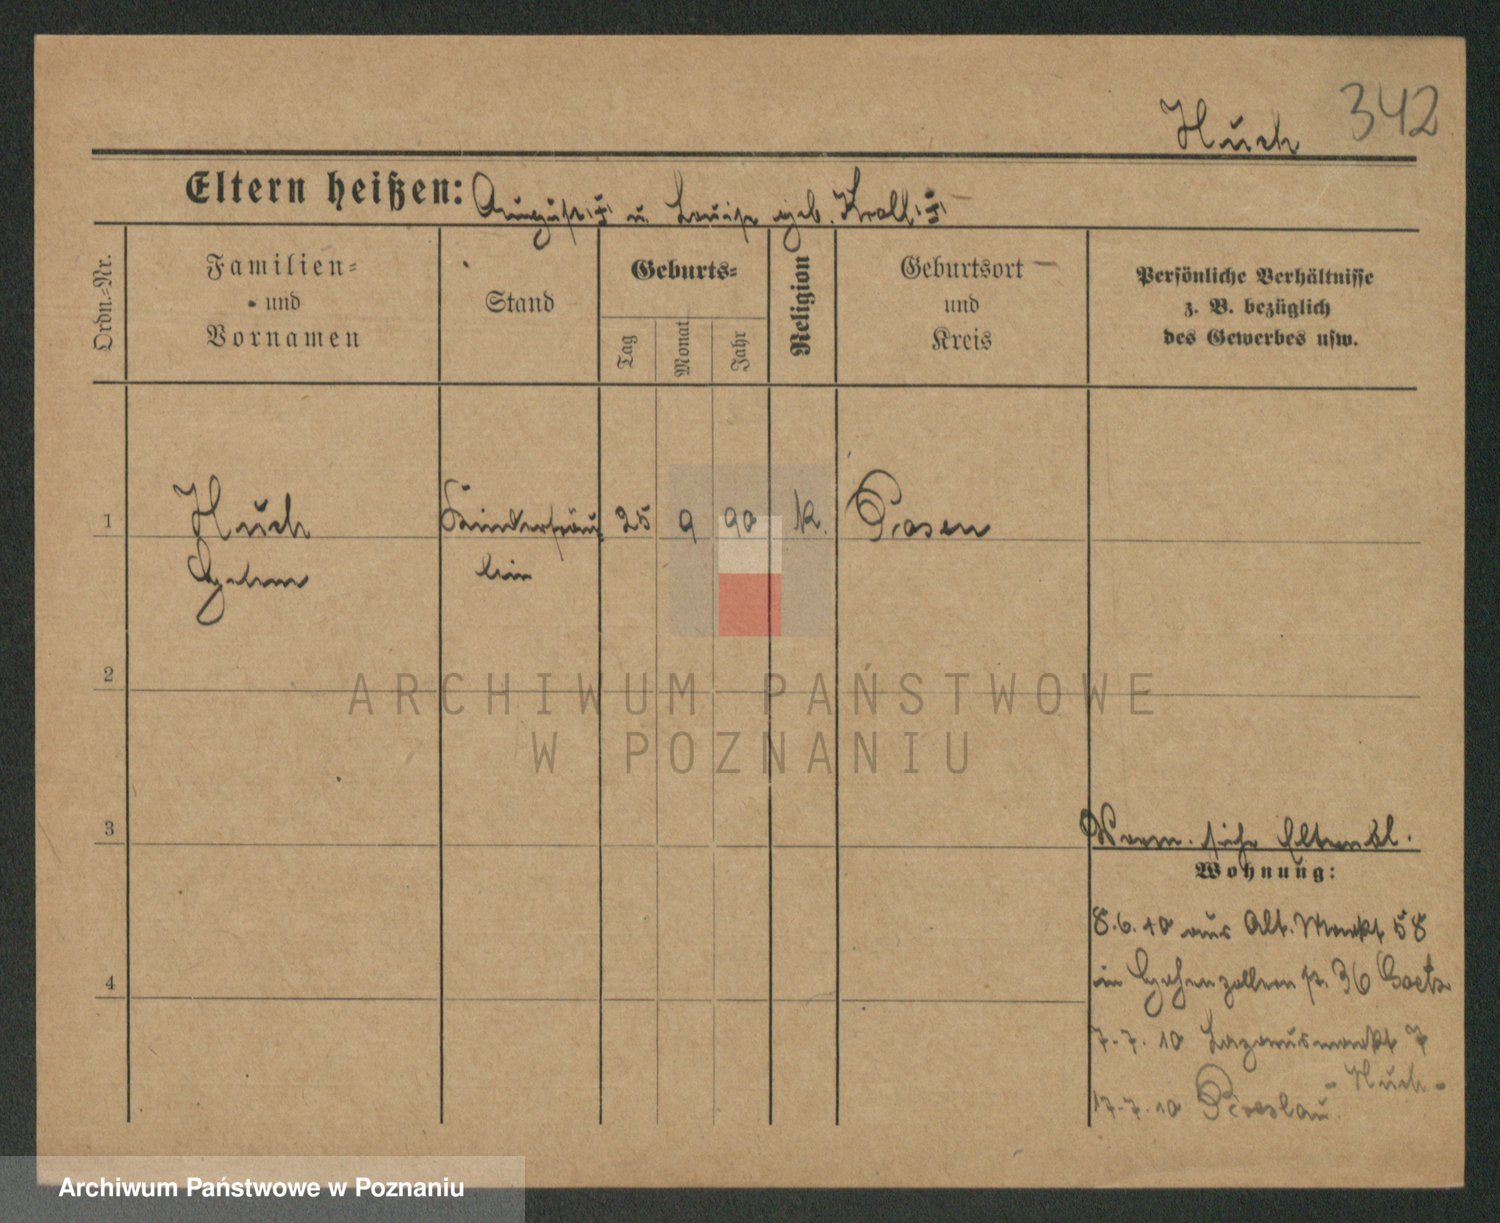 342
Huch
Eltern heißen: August † u. Louise geb. Kroll †
Ordn.-Nr.
Familien-
und
Vornamen
Stand
Geburts-
Tag
Monat
Jahr
Religion
Geburtsort
und
Kreis
Persönliche Verhältnisse
z. B. bezüglich
des Gewerbes usw.
1
Huch Kinderfräu 25 9 90 k. Posen
lein
2
ARCHIWUM PAŃSTWOWE
W POZNANIU
3
Verm. siehe Elternbl.
Wohnung:
8.6.10 aus Alt. Markt 58
4
in Hohenzollern st. 36 Goetz
7.7.10 Lazarusmarkt 7
- Huch -
17.7.10 Breslau.
Archiwum Państwowe w Poznaniu